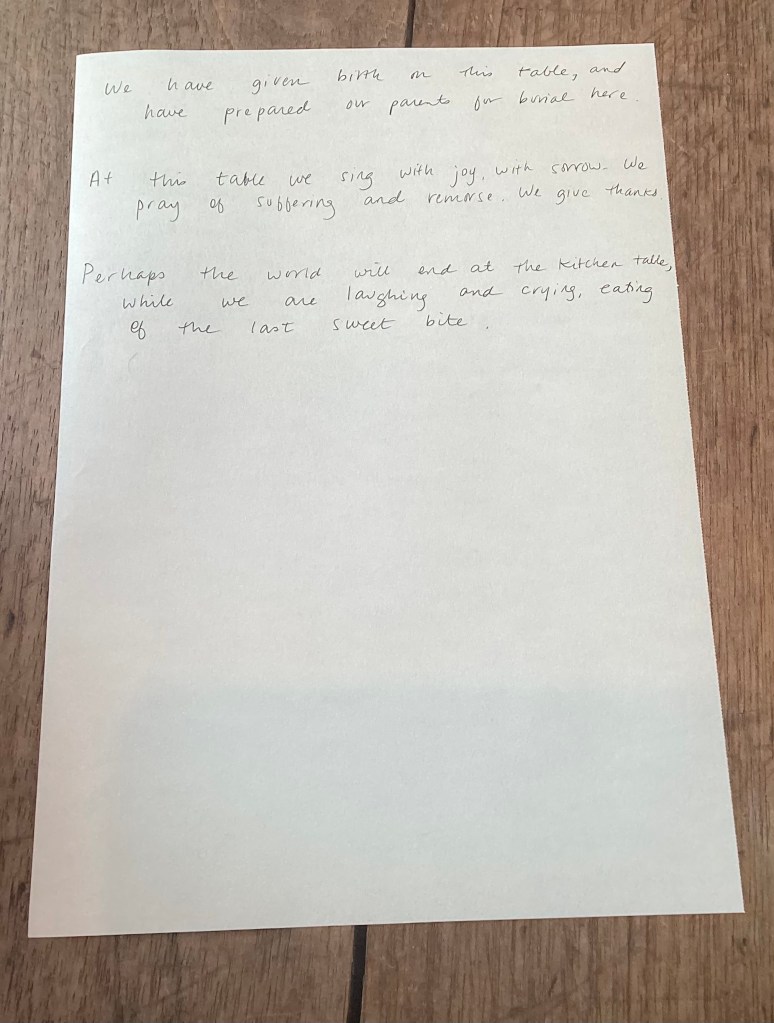 We have given birth on this table, and
have prepared our parents for burial here.
At this table we sing with joy, with sorrow. We
pray of suffering and remorse. We give thanks.
Perhaps the world will end at the kitchen table,
while we are laughing and crying, eating
of the last sweet bite.